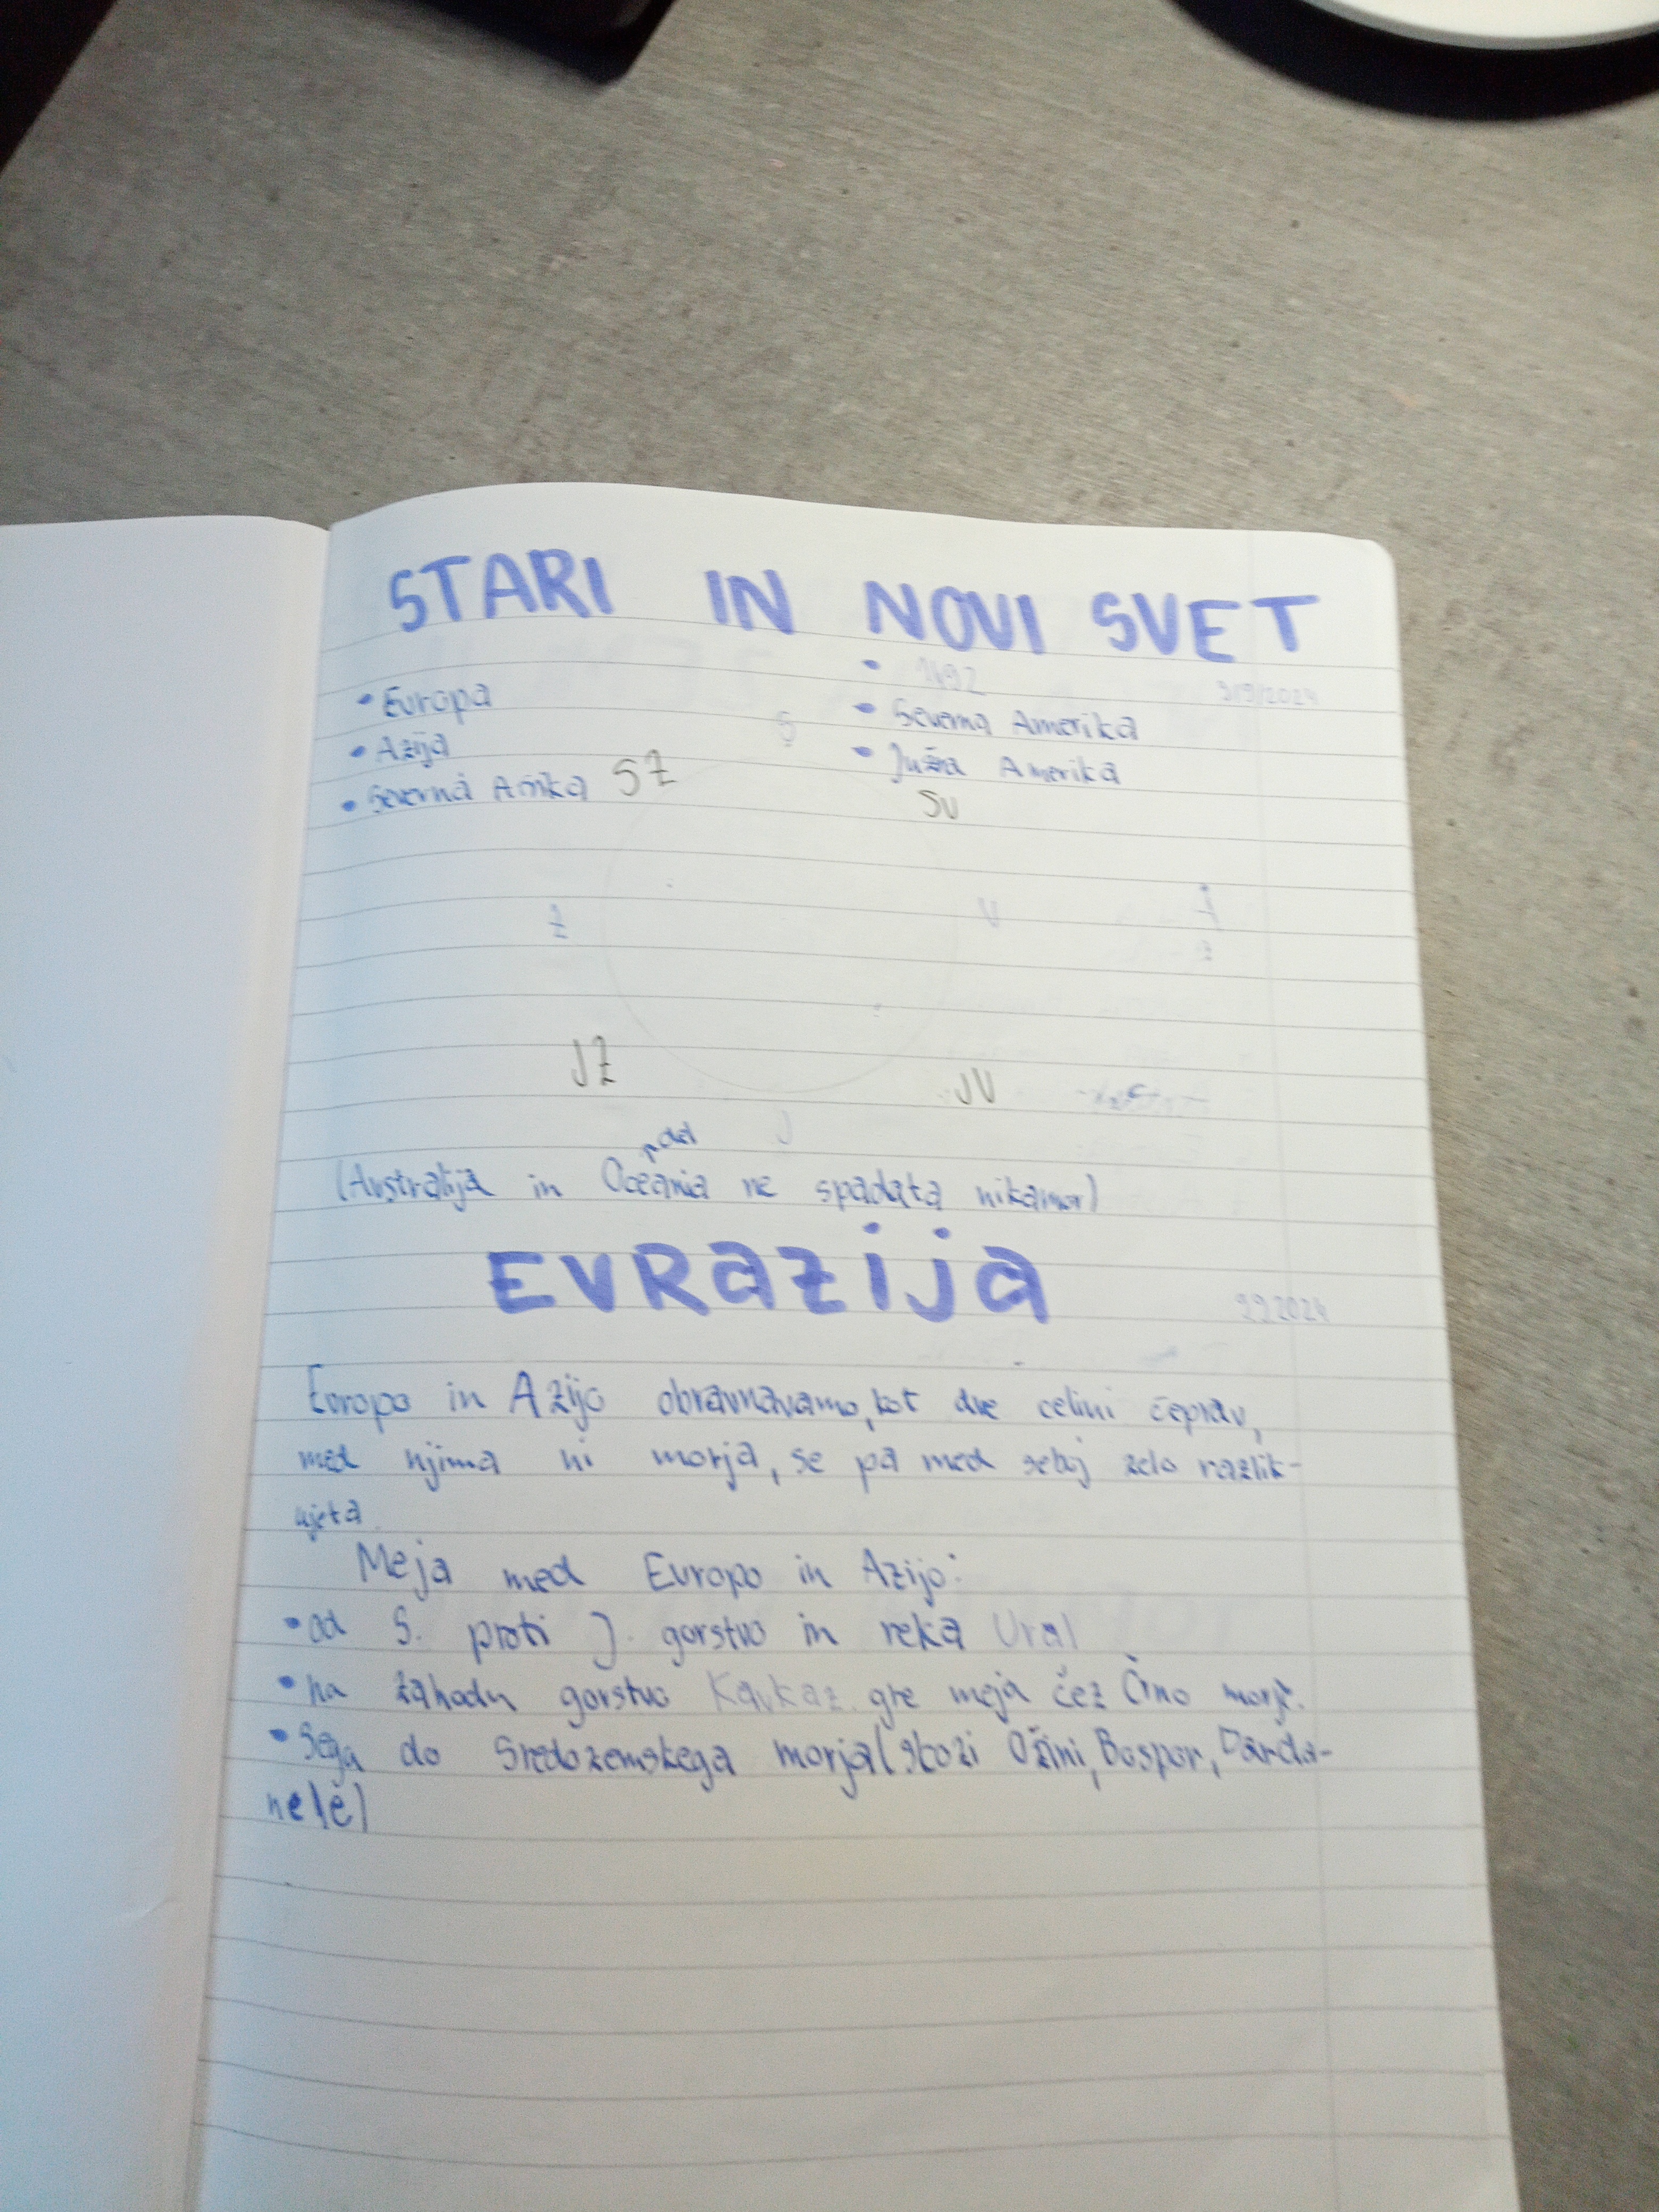 STARI IN NOVI SVET
• 1492
9/9/2024
• Evropa
• Severna Amerika
• Azija
• Južna Amerika
• Severna Afrika
S
SZ
SV
Z
V
JZ
JV
J
(Avstralija in Oceania ne spadata nikamor)
EVRaZija
9.9.2024
Evropo in Azijo obravnavamo, kot dve celini čeprav,
med njima ni morja, se pa med seboj zelo razlik-
ujeta.
Meja med Evropo in Azijo:
• od S. proti J. gorstvo in reka Ural
• na zahodu gorstvo Kavkaz gre meja čez Črno morje.
• Sega do Sredozemskega morja (skozi Ožini, Bospor, Darda-
nele)